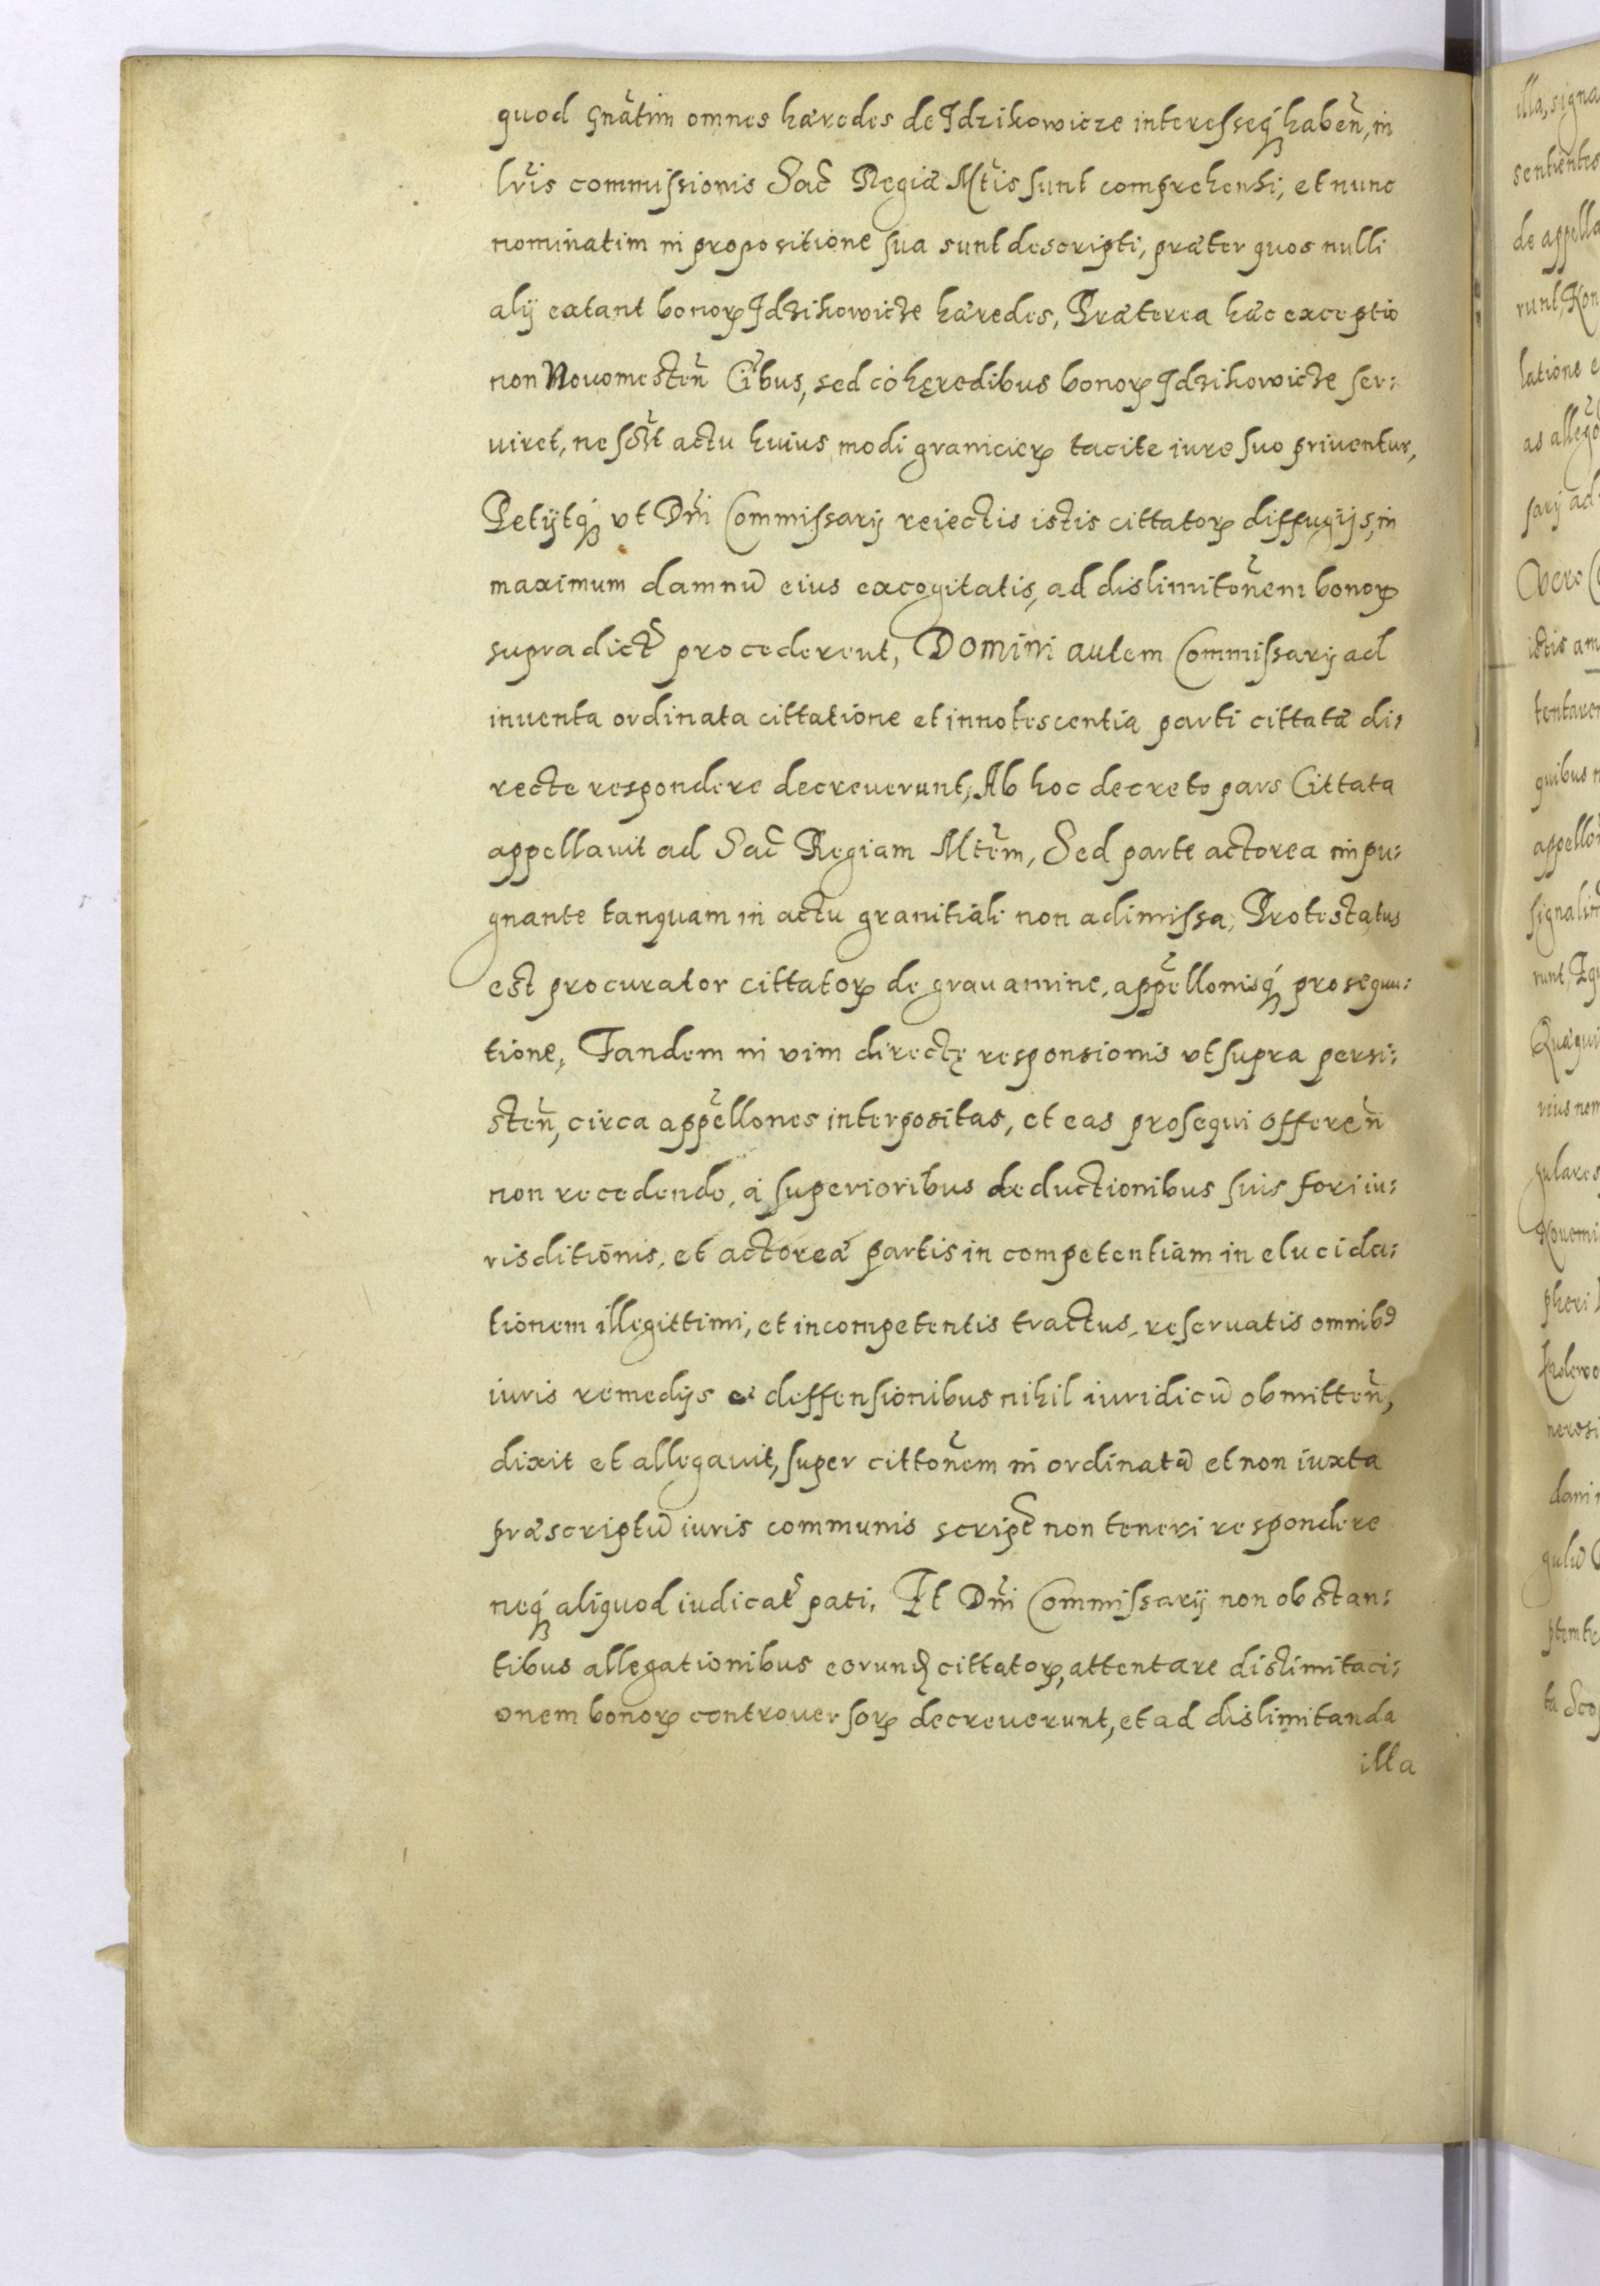 quod gnãtim omnes hæredes de Idzikowicze interesseq́ꝫ haben̄, in
lr̃is commissionis Sac̃ Regiæ Mt̃is sunt comprehensi, et nunc
nominatim in propositione sua sunt descripti, præter quos nulli
alij extant bonoꝝ Idzikowicze hæredes, Præterea hæc exceptio
non Nouomesten̄ Ci̓bus, sed cohęredibus bonoꝝ Idzikowicze ser:
uiret, ne actu huius modi granicieꝝ tacite iure suo priuentur,
Petijtq́ꝫ vt Dn̄i Commissarij reiectis istis cittatoꝝ diffugijs, in
maximum damnũ eius excogitatis, ad dislimitõnem bonoꝝ
supradict̃ procederent, Domini autem Commissarij ad
inuenta ordinata cittatione et innotescentia parti cittatæ di:
recte respondere decreuerunt, Ab hoc decreto pars Cittata
appellauit ad Sac̃ Regiam Mt̃em, Sed parte actorea impu:
gnante tanquam in actu granitiali non adimissa, Protestatus
est procurator cittatoꝝ de grauamine, appẽllonisq́ꝫ prosequu:
tione, Tandem in vim directę responsionis vt supra persi:
sten̄, circa appẽllones interpositas, et eas prosequi offeren̄
non recedendo, à superioribus deductionibus suis fori iu:
risditionis, et actoreæ partis in competentiam in elucida:
tionem illegittimi, et incompetentis tractus, reseruatis omnibꝰ
iuris remedijs et deffensionibus nihil iuridicũ obmitten̄,
dixit et allegauit, super cittõnem in ordinatã et non iuxta
præscriptũ iuris communis script̃ non teneri respondere
neq́ꝫ aliquod iudicat̃ pati, Et Dn̄i Commissarij non obstan:
tibus allegationibus eorunꝺ̃ cittatoꝝ, attentare dislimitaci:
onem bonoꝝ controuersoꝝ decreuerunt, et ad dislimitanda
illa
illa, signa
sentientes
de appella
runt, Kon
latione e
as allego
sarij ad
Vero
istis am
tentaren
quibus n
appello
signalim
runt, Igi
Quæqui
gulares
Nouomi
pheri
nerosi